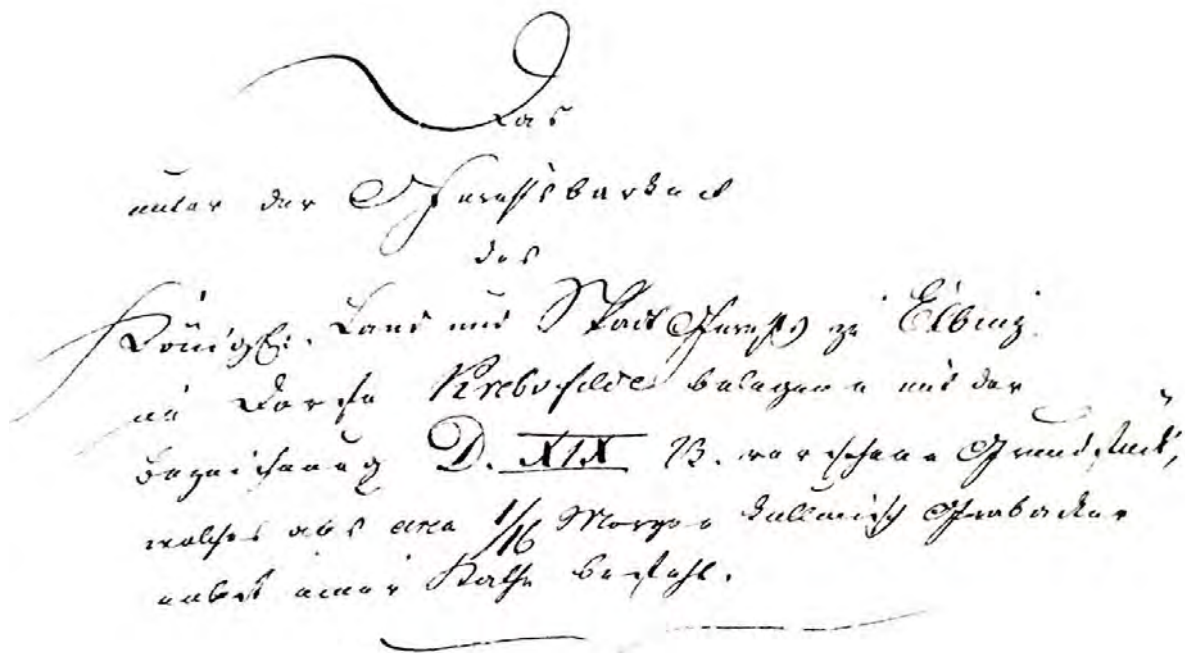 Das
unter der Gerichtsbarkeit
des
Königl. Land und Stadt Gerichts zu Elbing
im Dorfe Krebsfelde belegene mit der
Bezeichnung D. XIX B. versehene Grundstück,
welches aus circa 1/16 Morgen kullmisch
nebst einer Kathe besteht.